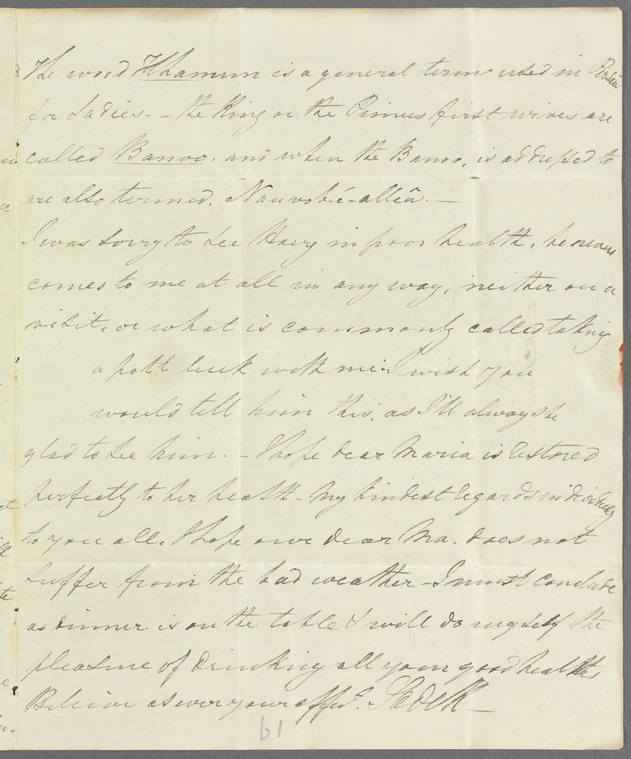 The word Khanum is a general term used in Persia
for Ladies. - the King or the Princes first wives are
called Banoo. and when the Banoo, is addressed to
are also termed, Nauvob-é-alleâ. —
I was sorry to see Harry in poor health, he never
comes to me at all in any way, neither on a
visit, or what is commonly called taking
a pott luck with me. I wish you
would tell him this, as I'll always be
glad to see him. - I hope dear Maria is restored
perfectly to her health - My kindest regards individually
to you all. I hope our dear Ma. does not
suffer from the bad weather - I must conclude
as dinner is on the table & I will do myself the
pleasure of drinking all your good healths
Believe as ever your affec.
61